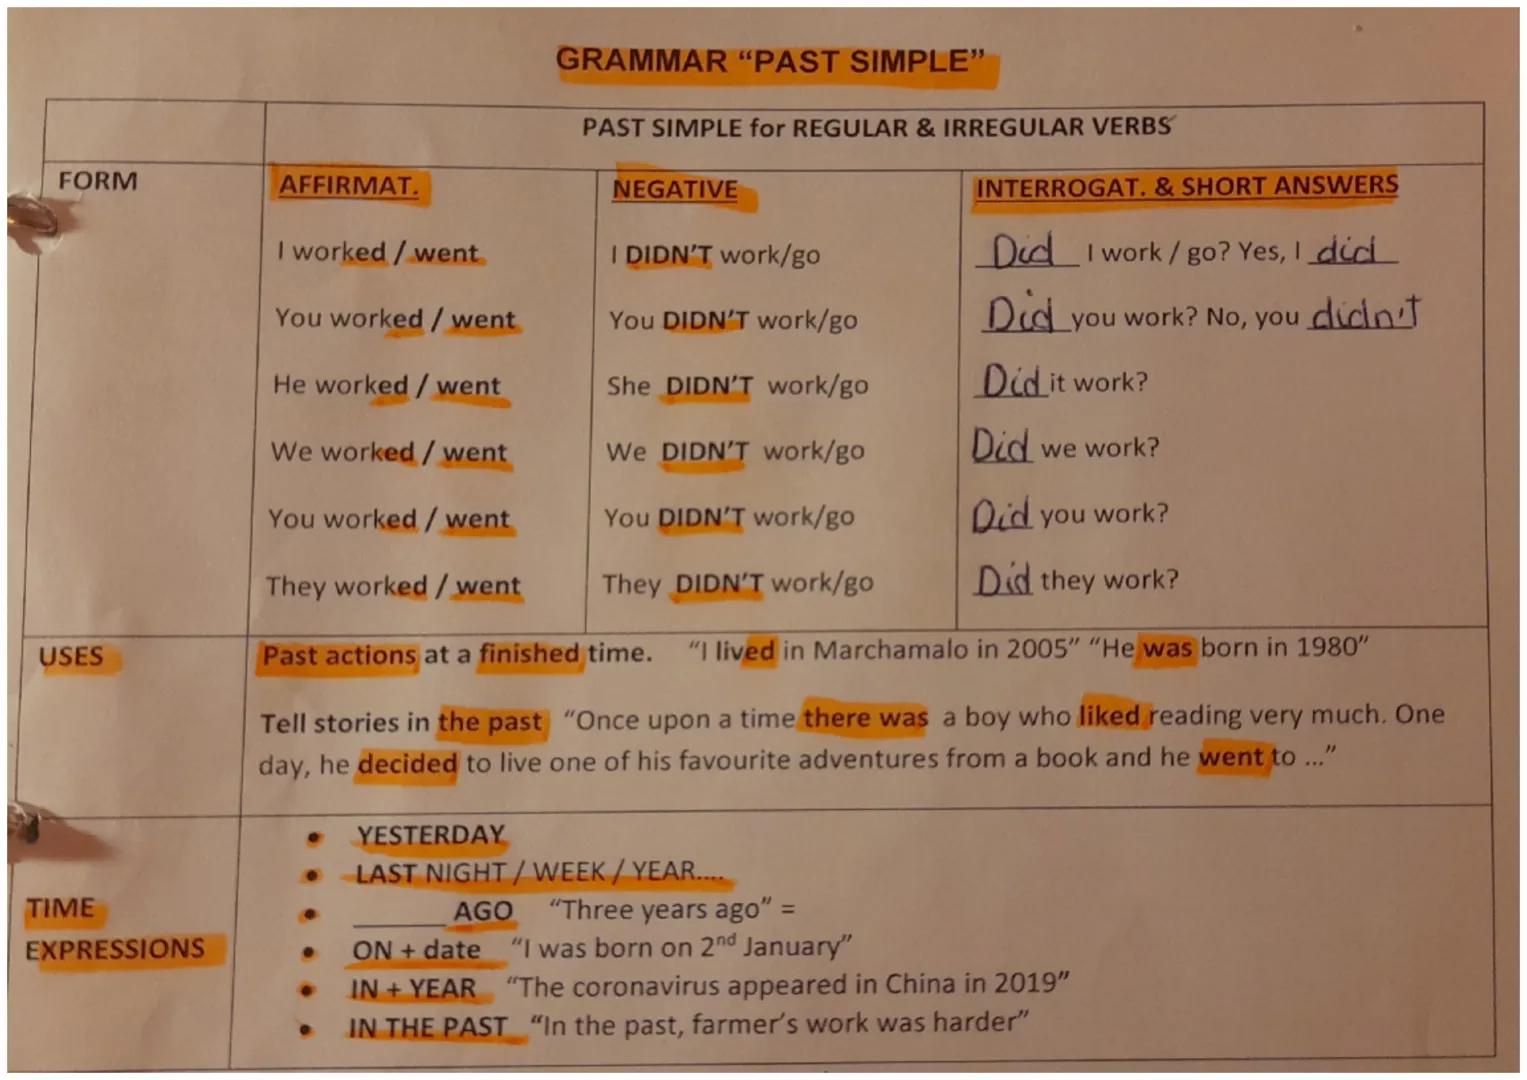 GRAMMAR “PAST SIMPLE”
PAST SIMPLE for REGULAR & IRREGULAR VERBS
FORM
AFFIRMAT.
NEGATIVE
INTERROGAT. & SHORT ANSWERS
I worked / went
I DIDN’T work/go
Did I work / go? Yes, I did
You worked / went
You DIDN’T work/go
Did you work? No, you didn't
He worked / went
She DIDN’T work/go
Did it work?
We worked / went
We DIDN’T work/go
Did we work?
You worked / went
You DIDN’T work/go
Did you work?
They worked / went
They DIDN’T work/go
Did they work?
USES
Past actions at a finished time. “I lived in Marchamalo in 2005” “He was born in 1980”
Tell stories in the past “Once upon a time there was a boy who liked reading very much. One
day, he decided to live one of his favourite adventures from a book and he went to ...”
TIME
EXPRESSIONS
• YESTERDAY
• LAST NIGHT / WEEK / YEAR....
• ______ AGO “Three years ago” =
• ON + date “I was born on 2nd January”
• IN + YEAR “The coronavirus appeared in China in 2019”
• IN THE PAST “In the past, farmer’s work was harder”